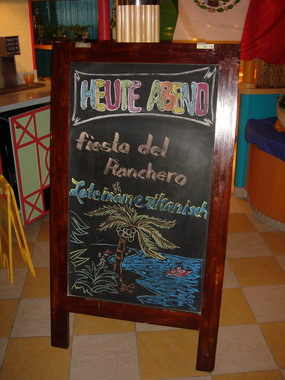 HEUTE ABEND
fiesta del
Ranchero
Lateinamerikanisch